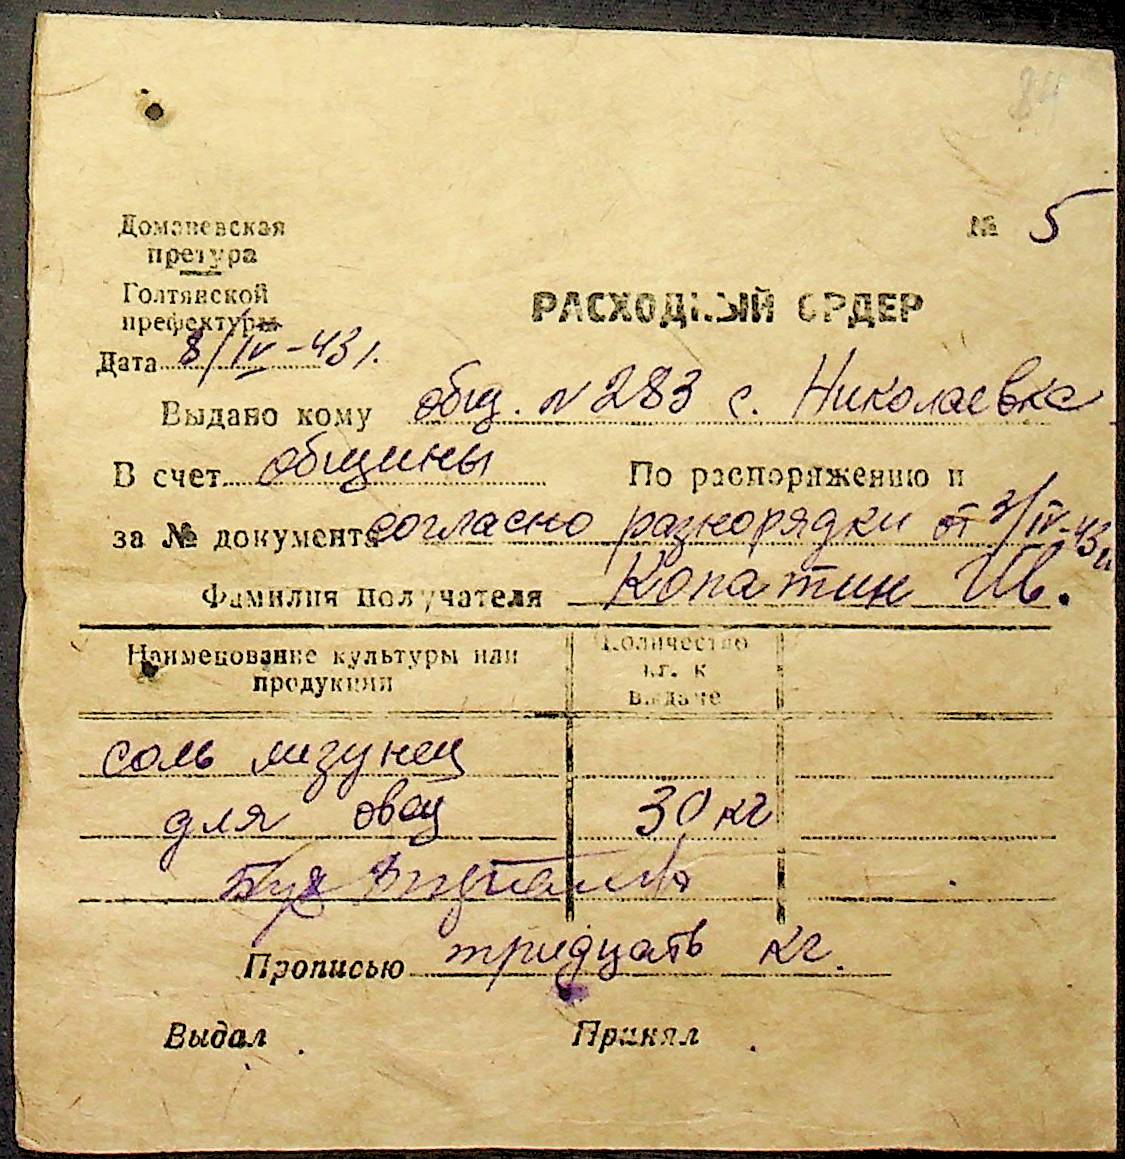 84
Доманевская
претура
№ 5
Голтянской
префектуры
РАСХОДНЫЙ ОРДЕР
Дата 8/IV-43 г.
Выдано кому общ. №283 с. Николаевка
В счет общины По распоряжению и
за № документа согласно разнорядки от 3/IV-43 г.
Фамилия получателя Копатин Ив.
Наименование культуры или продукции
Количество кг. к выдаче
соль лизунец
для овец 30 кг
Бух
Прописью тридцать кг.
Выдал Принял